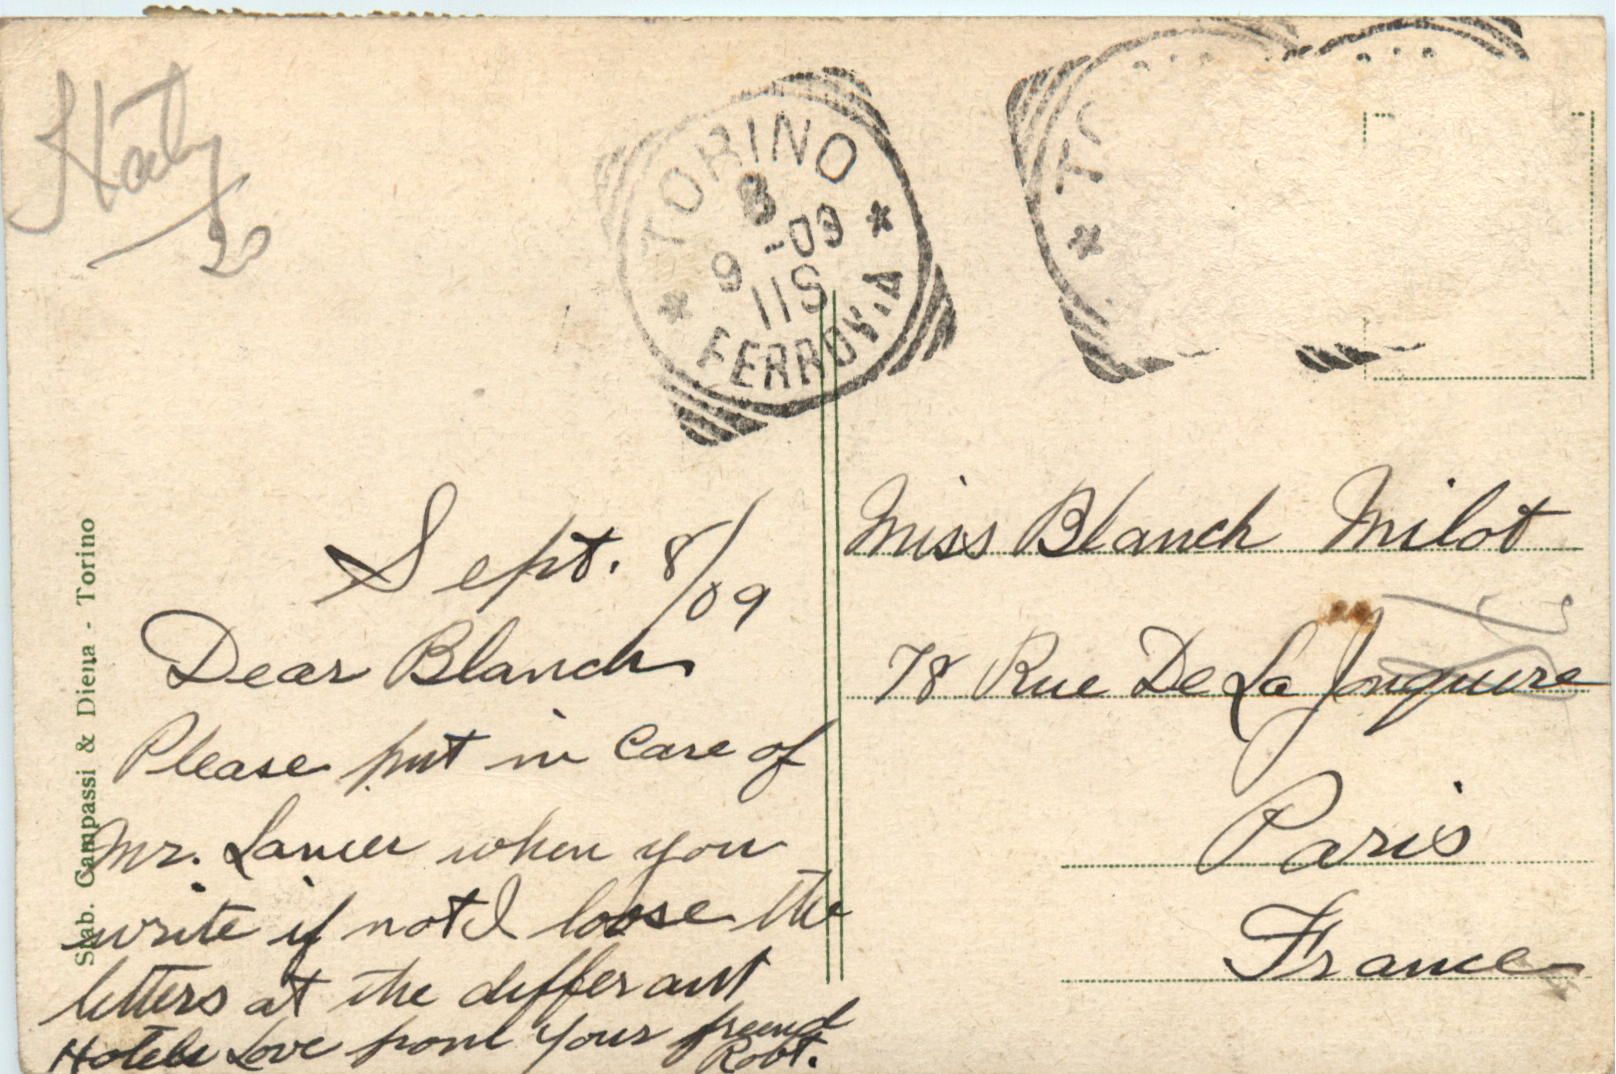 Italy
20
TORINO
8
9 -09
11S
FERROVIA
TO
Stab. Campassi & Diena - Torino
Sept. 8/09
Dear Blanch
Please put in care of
Mr. when you
write if not I loose the
letters at the differant
Hotels Love from your freend
Robt.
Miss Blanch Milot
78 Rue De La Jonquiere
Paris
France